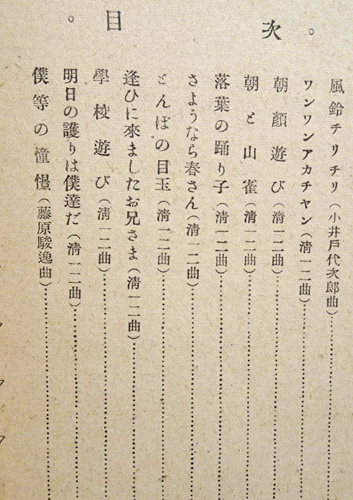 。次 目。
風鈴チリチリ（小井戸代次郎曲）
ワンワンアカチヤン（淸一二曲）
朝顔遊び（淸一二曲）
朝と山雀（淸一二曲）
落葉の踊り子（淸一二曲）
さようなら春さん（淸一二曲）
とんぼの目玉（淸一二曲）
逢ひに來ましたお兄さま（淸一二曲）
學校遊び（淸一二曲）
明日の護りは僕達だ（淸一二曲）
僕等の憧憬（藤原駿逸曲）